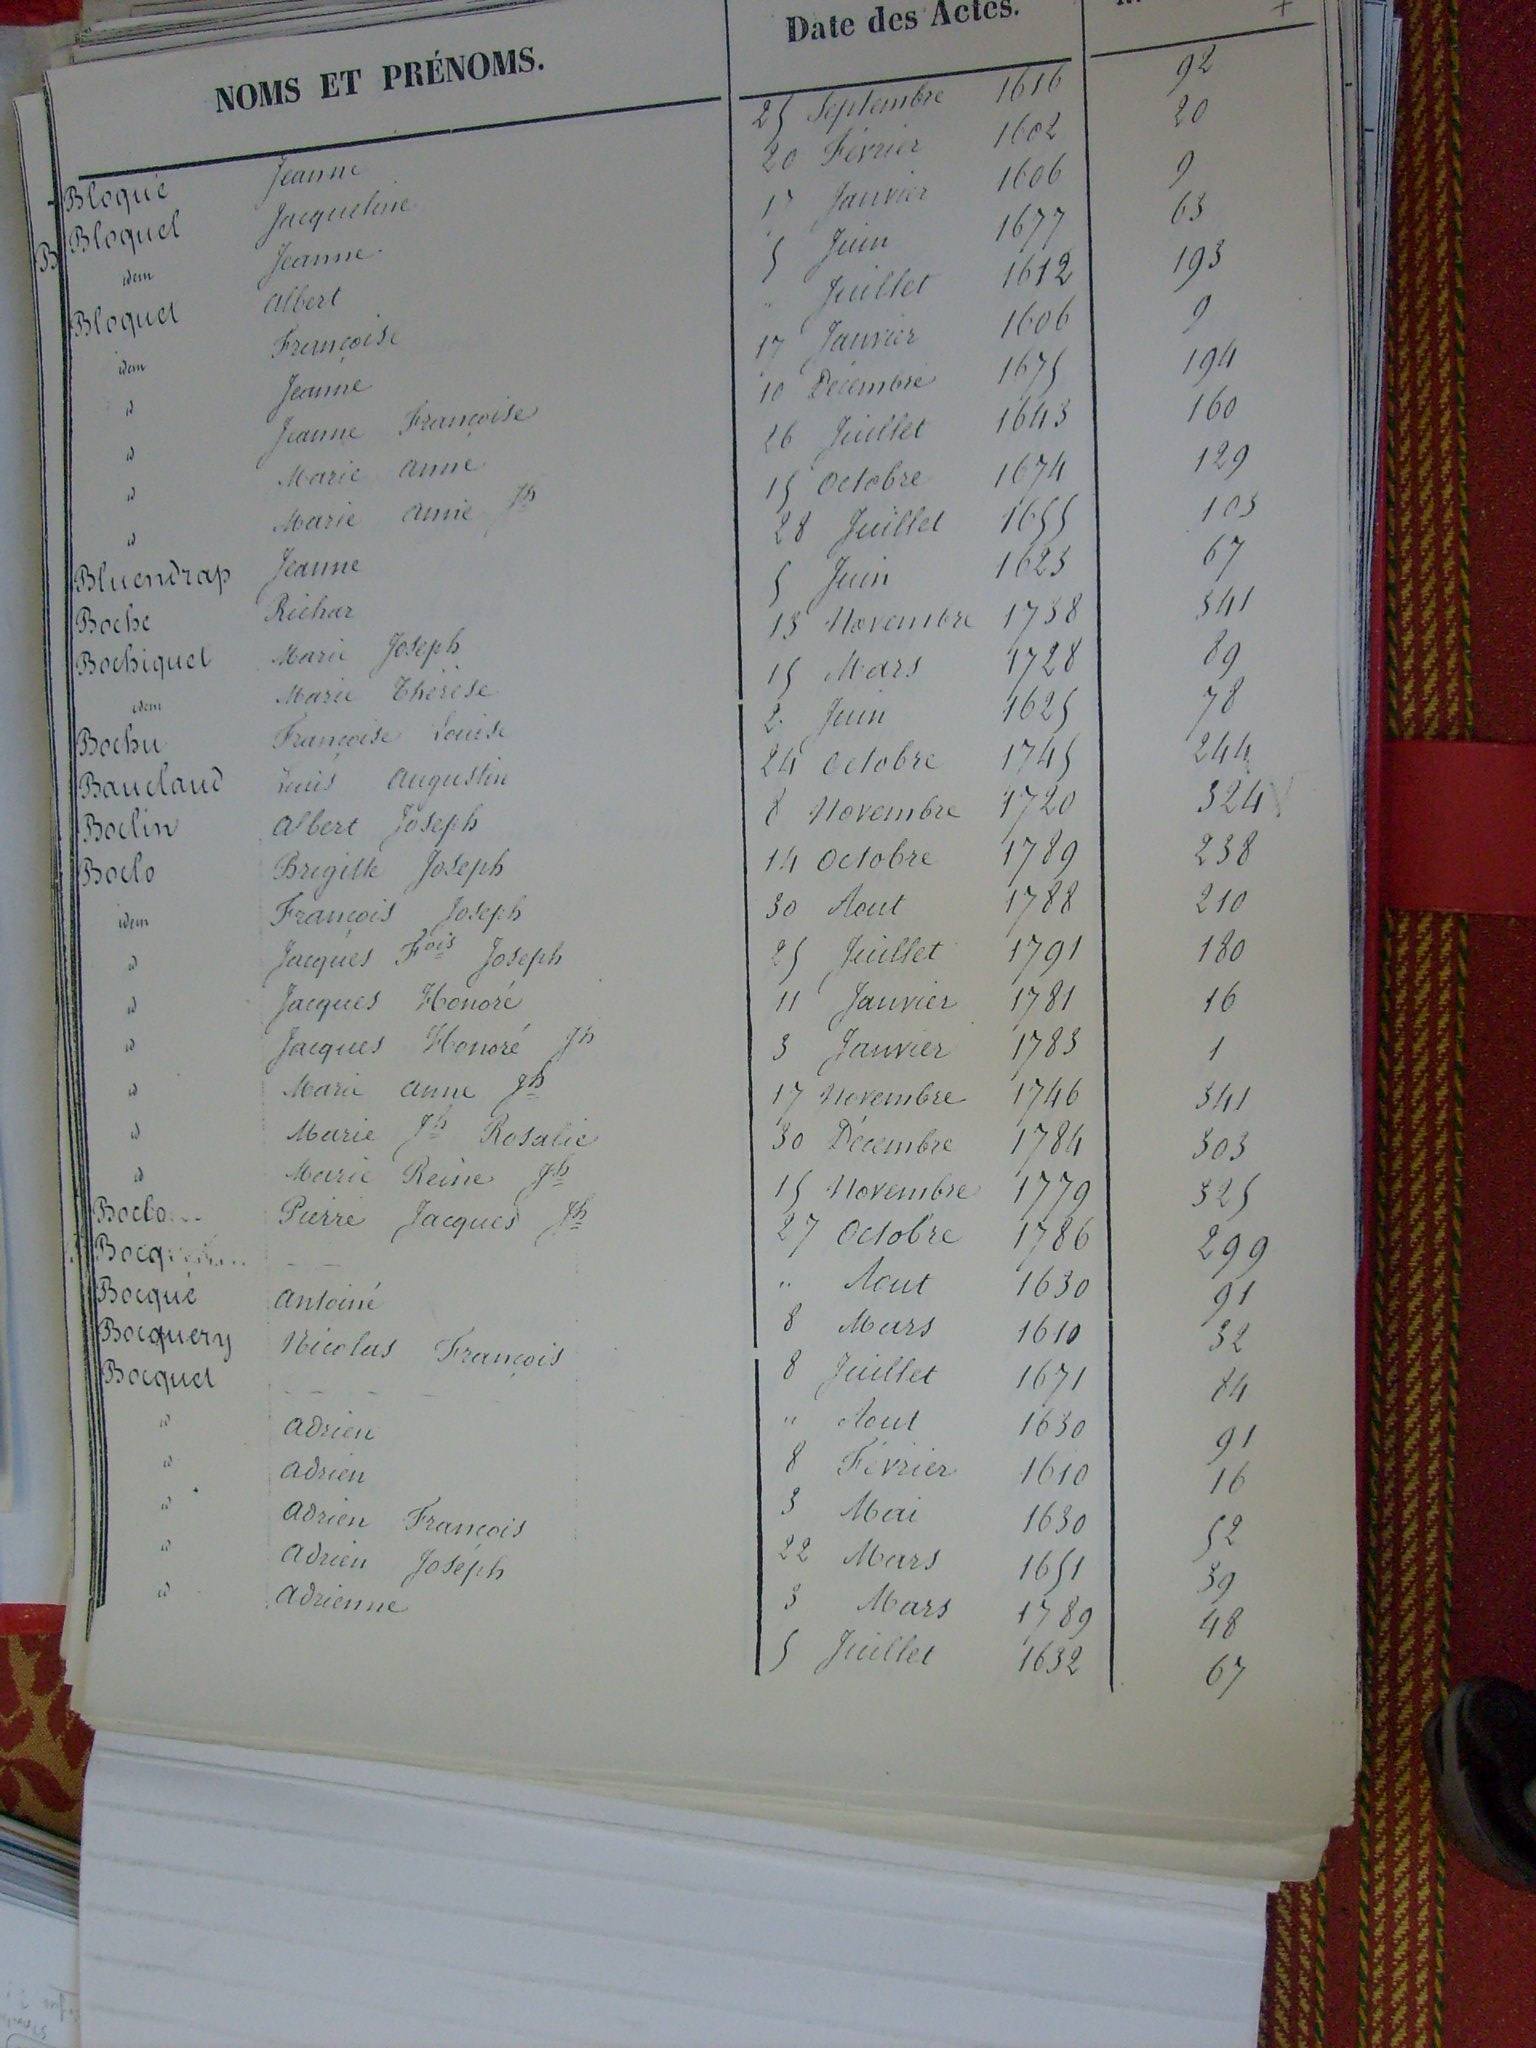 NOMS ET PRÉNOMS. Date des Actes.
Bloqué Jeanne 25 Septembre 1616 92
Bloquel Jacqueline 20 Février 1602 20
idem Jeanne 17 Janvier 1606 9
Bloquet Albert 5 Juin 1677 63
idem Françoise " Juillet 1612 193
id Jeanne 17 Janvier 1606 9
id Jeanne Françoise 10 Décembre 1675 194
id Marie Anne 26 Juillet 1643 160
id Marie Anne Jh 15 Octobre 1674 129
Bluendrap Jeanne 28 Juillet 1655 103
Boche Richar 5 Juin 1623 67
Bochiquel Marie Joseph 13 Novembre 1738 341
idem Marie Thérèse 15 Mars 1728 89
Bochu Françoise Louise 2 Juin 1625 78
Bauclaud Louis Augustin 24 Octobre 1745 244
Boclin Albert Joseph 8 Novembre 1720 324
Boclo Brigitte Joseph 14 Octobre 1789 238
idem François Joseph 30 Aout 1788 210
id Jacques Fois Joseph 25 Juillet 1791 180
id Jacques Honoré 11 Janvier 1781 16
id Jacques Honoré Jh 3 Janvier 1783 1
id Marie Anne Jh 17 Novembre 1746 341
id Marie Jh Rosalie 30 Décembre 1784 303
id Marie Reine Jh 15 Novembre 1779 325
Boclo... Pierre Jacques Jh 27 Octobre 1786 299
Bocq... " Aout 1630 91
Bocqué Antoine 8 Mars 1610 32
Bocquery Nicolas François 8 Juillet 1671 84
Bocquet " Aout 1630 91
id Adrien 8 Février 1610 16
id Adrien 3 Mai 1630 52
id Adrien François 22 Mars 1651 39
id Adrien Joseph 3 Mars 1789 48
id Adrienne 5 Juillet 1632 67